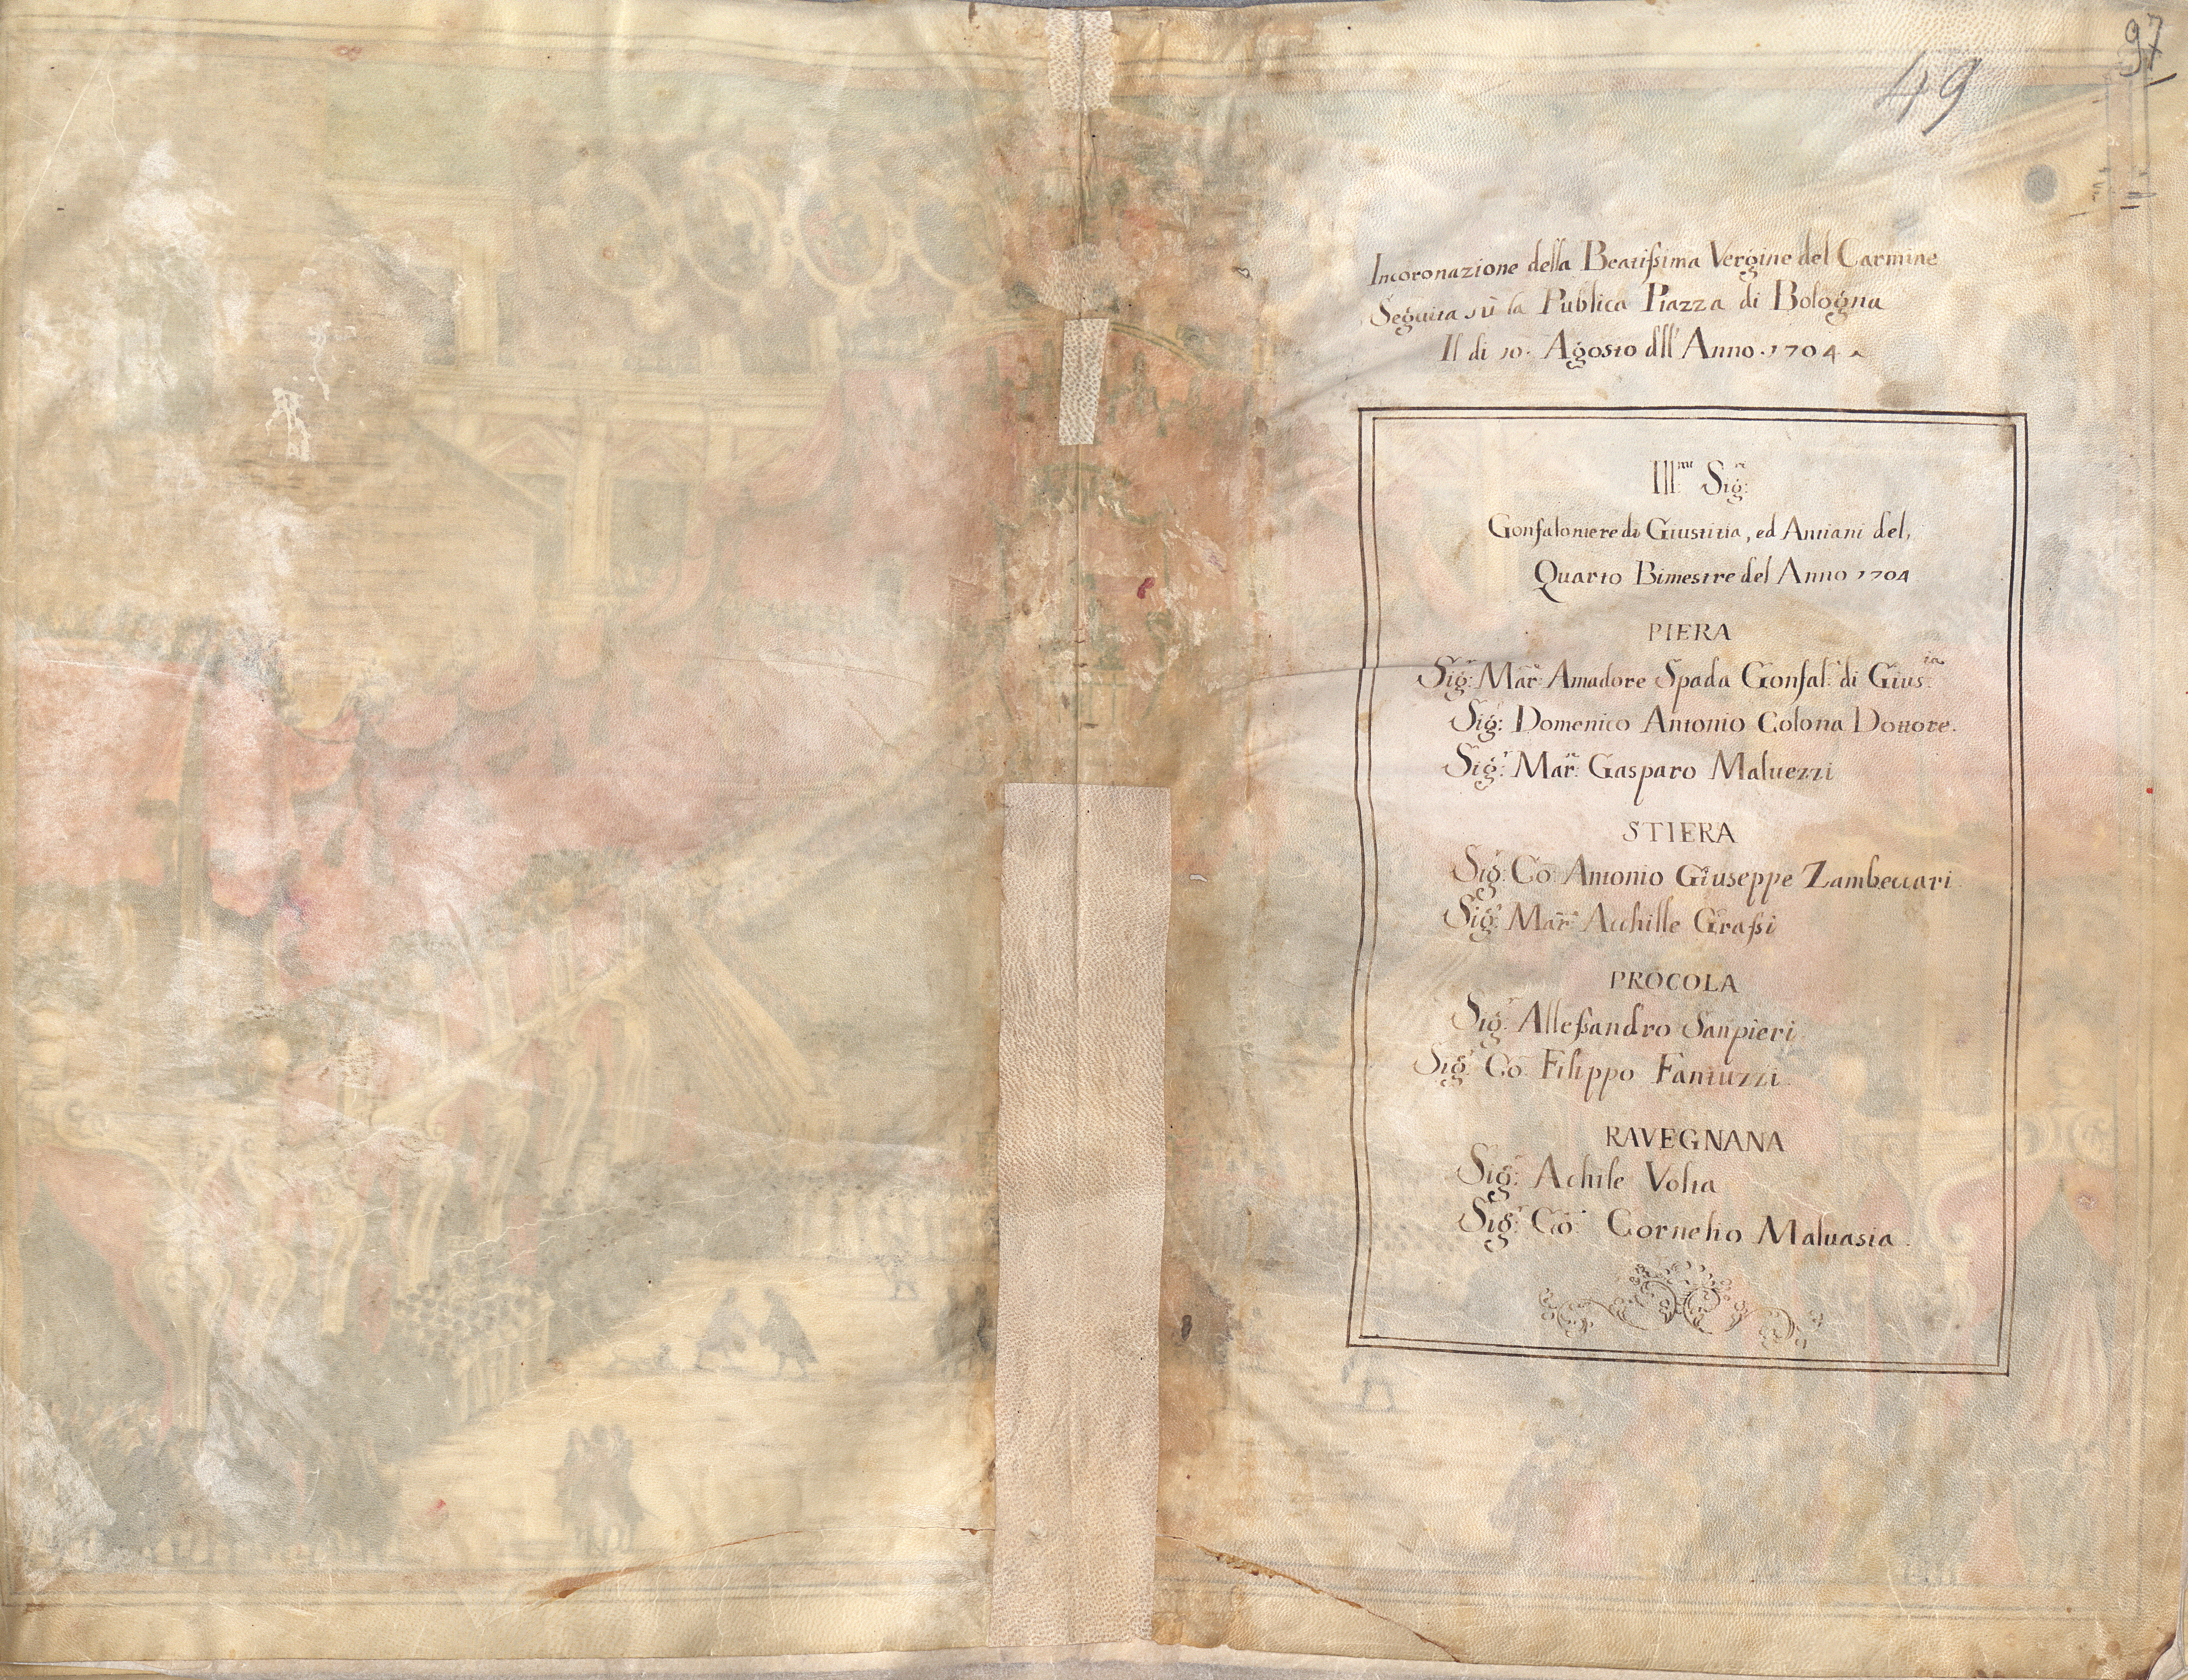 97
49
Incoronazione della Beatissima Vergine del Carmine
Seguita sù la Publica Piazza di Bologna
Il di 10. Agosto dll' Anno. 1704
Ill.mi Sig.ri
Gonfaloniere di Giustitia, ed Antiani del,
Quarto Bimestre del Anno 1704
PIERA
Sig.r Mar.e Amadore Spada Gonfal: di Gius.ia
Sig: Domenico Antonio Colona Dottore.
Sig.r Mar.e Gasparo Maluezzi
STIERA
Sig.r Co: Antonio Giuseppe Zambeccari
Sig.r Mar.e Acchille Grassi
PROCOLA
Sig.r Allessandro Sanpieri
Sig.r Co: Filippo Fantuzzi.
RAVEGNANA
Sig.r Achile Volta
Sig.r Co: Cornelio Maluasia.